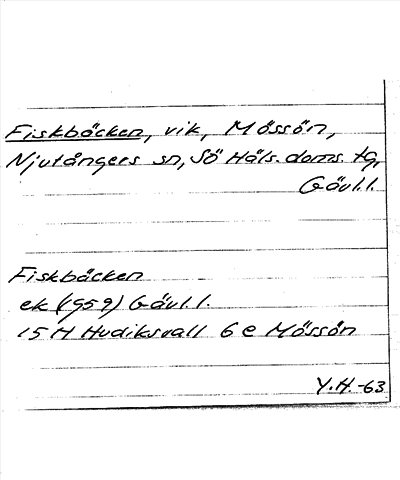 Fiskbäcken, vik, Mössön,
Njutångers sn, Sö Häls. doms. tg,
Gävl.l.
Fiskbäcken
ek (1959) Gävl.l.
15 H Hudiksvall 6 e Mössön
Y.H.-63